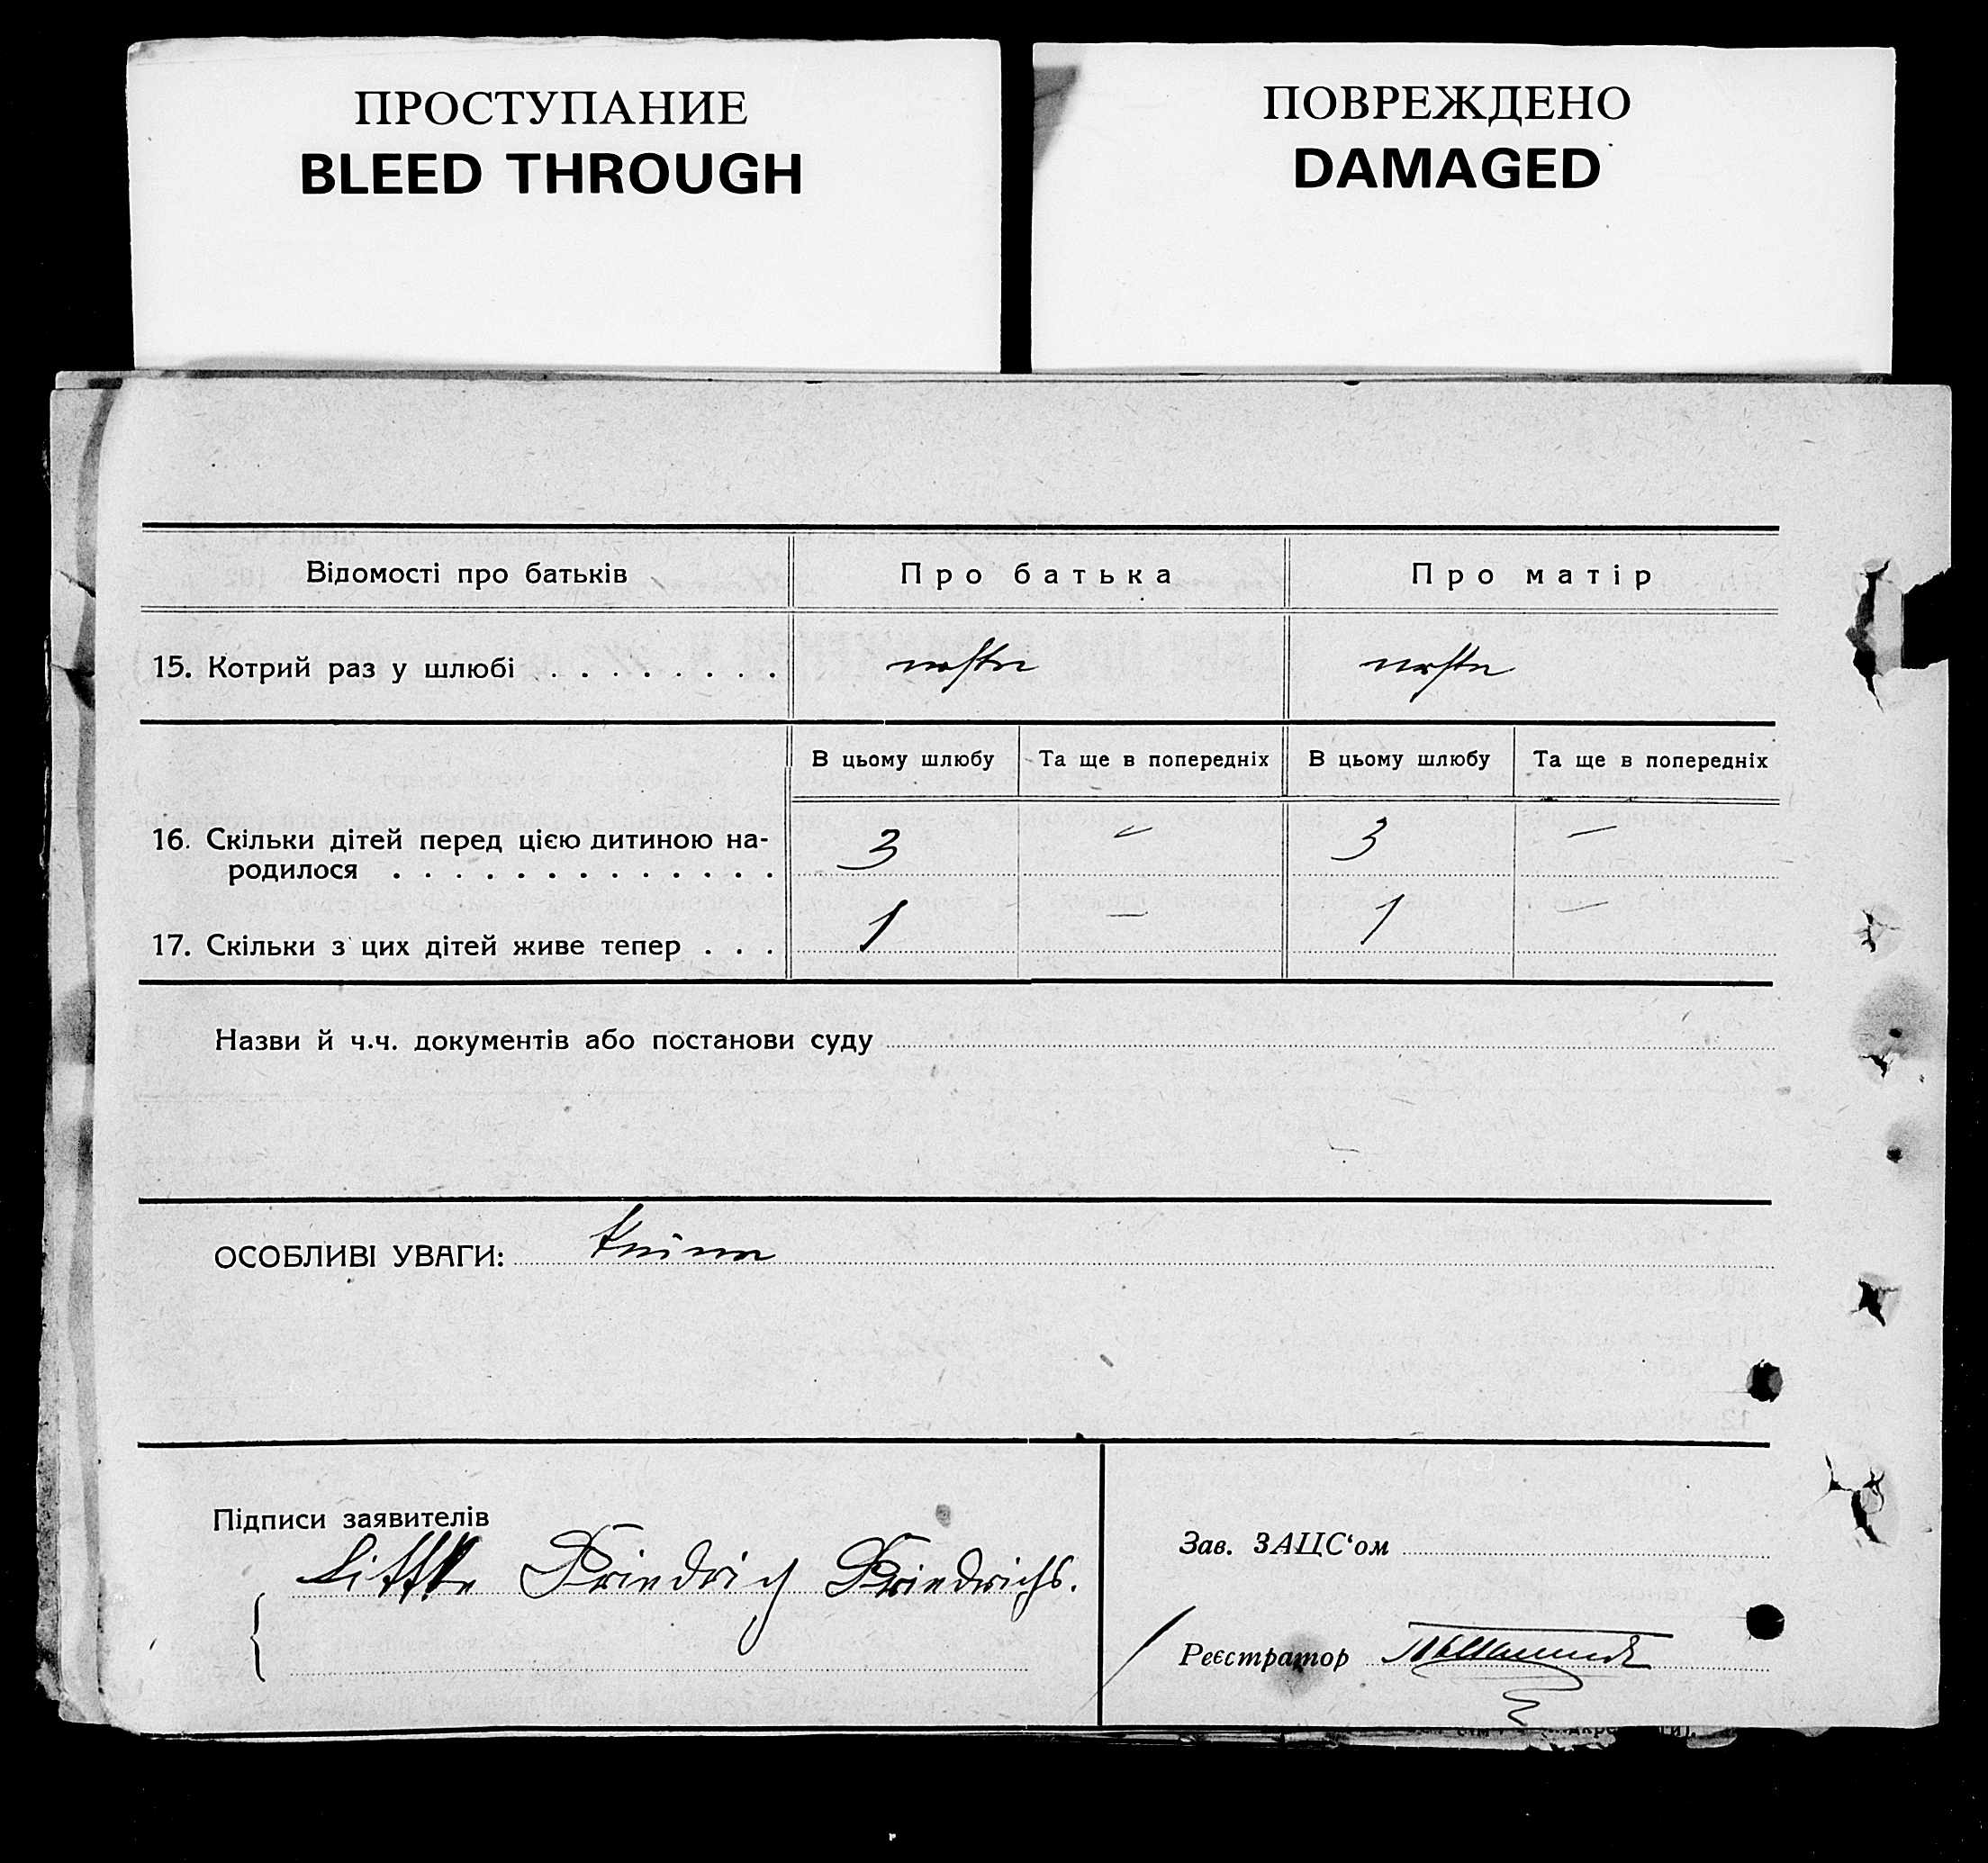 ПРОСТУПАНИЕ
BLEED THROUGH
ПОВРЕЖДЕНО
DAMAGED
Відомості про батьків Про батька Про матір
15. Котрий раз у шлюбі . . . . . . . . erste erste
В цьому шлюбу Та ще в попередніх В цьому шлюбу Та ще в попередніх
16. Скільки дітей перед цією дитиною на-
родилося . . . . . . . . . . . . . 3 — 3 —
17. Скільки з цих дітей живе тепер . . . 1 — 1 —
Назви й ч.ч. документів або постанови суду
ОСОБЛИВІ УВАГИ: Keine
Підписи заявителів
Friedrich Friedrichs.
Зав. ЗАЦС‘ом
Реєстратор